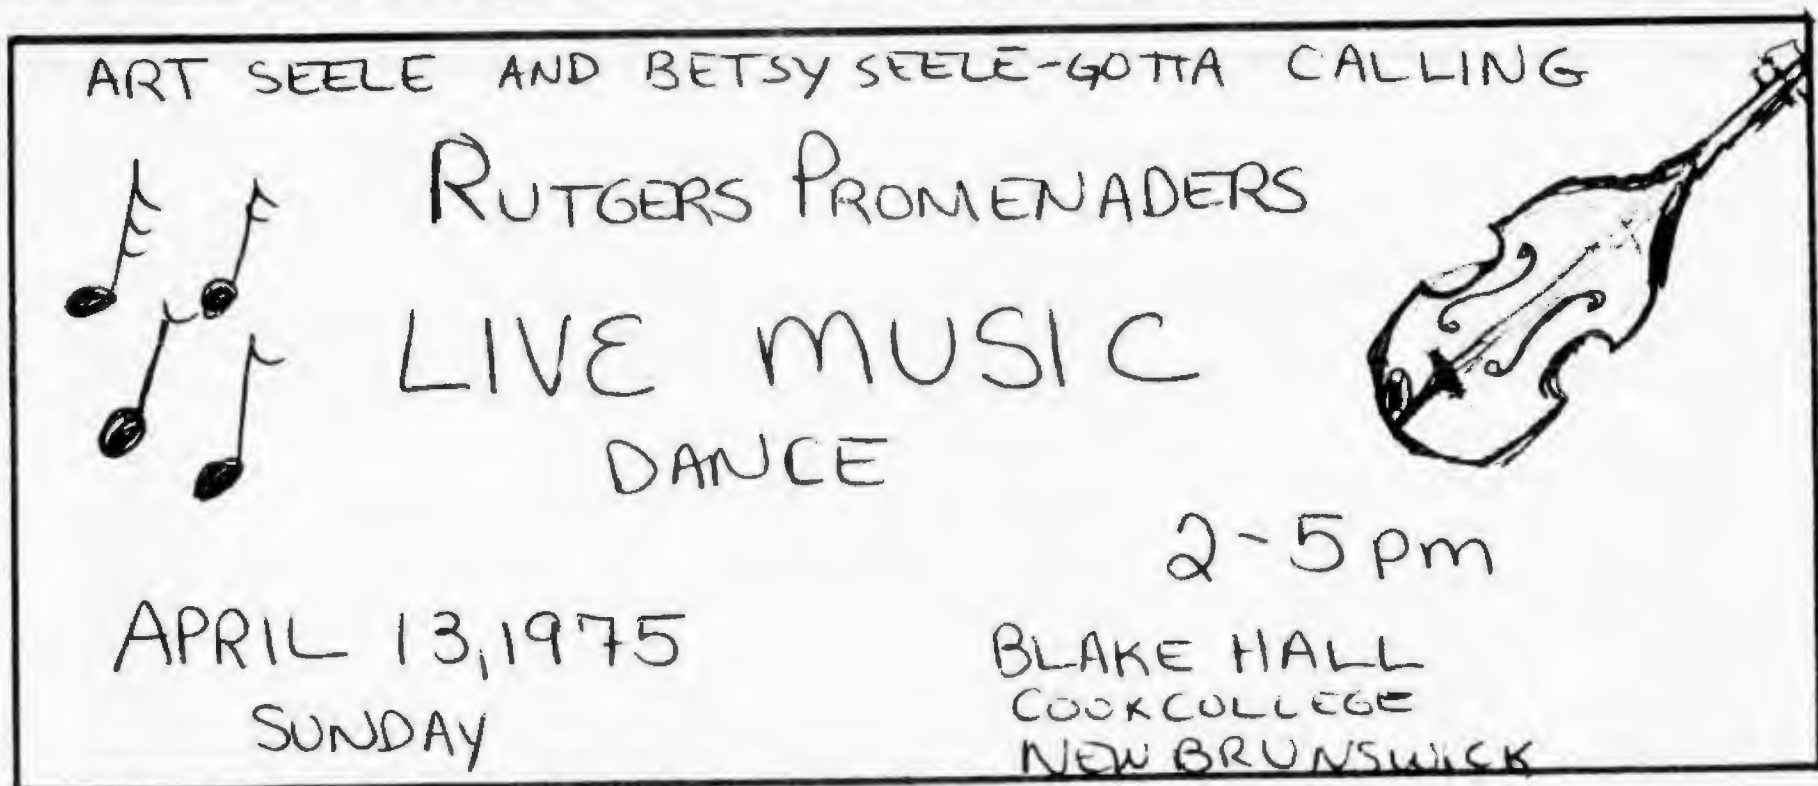 ART SEELE AND BETSY SEELE-GOTTA CALLING
RUTGERS PROMENADERS
LIVE MUSIC
DANCE
2-5pm
APRIL 13,1975
SUNDAY
BLAKE HALL
COOK COLLEGE
NEW BRUNSWICK